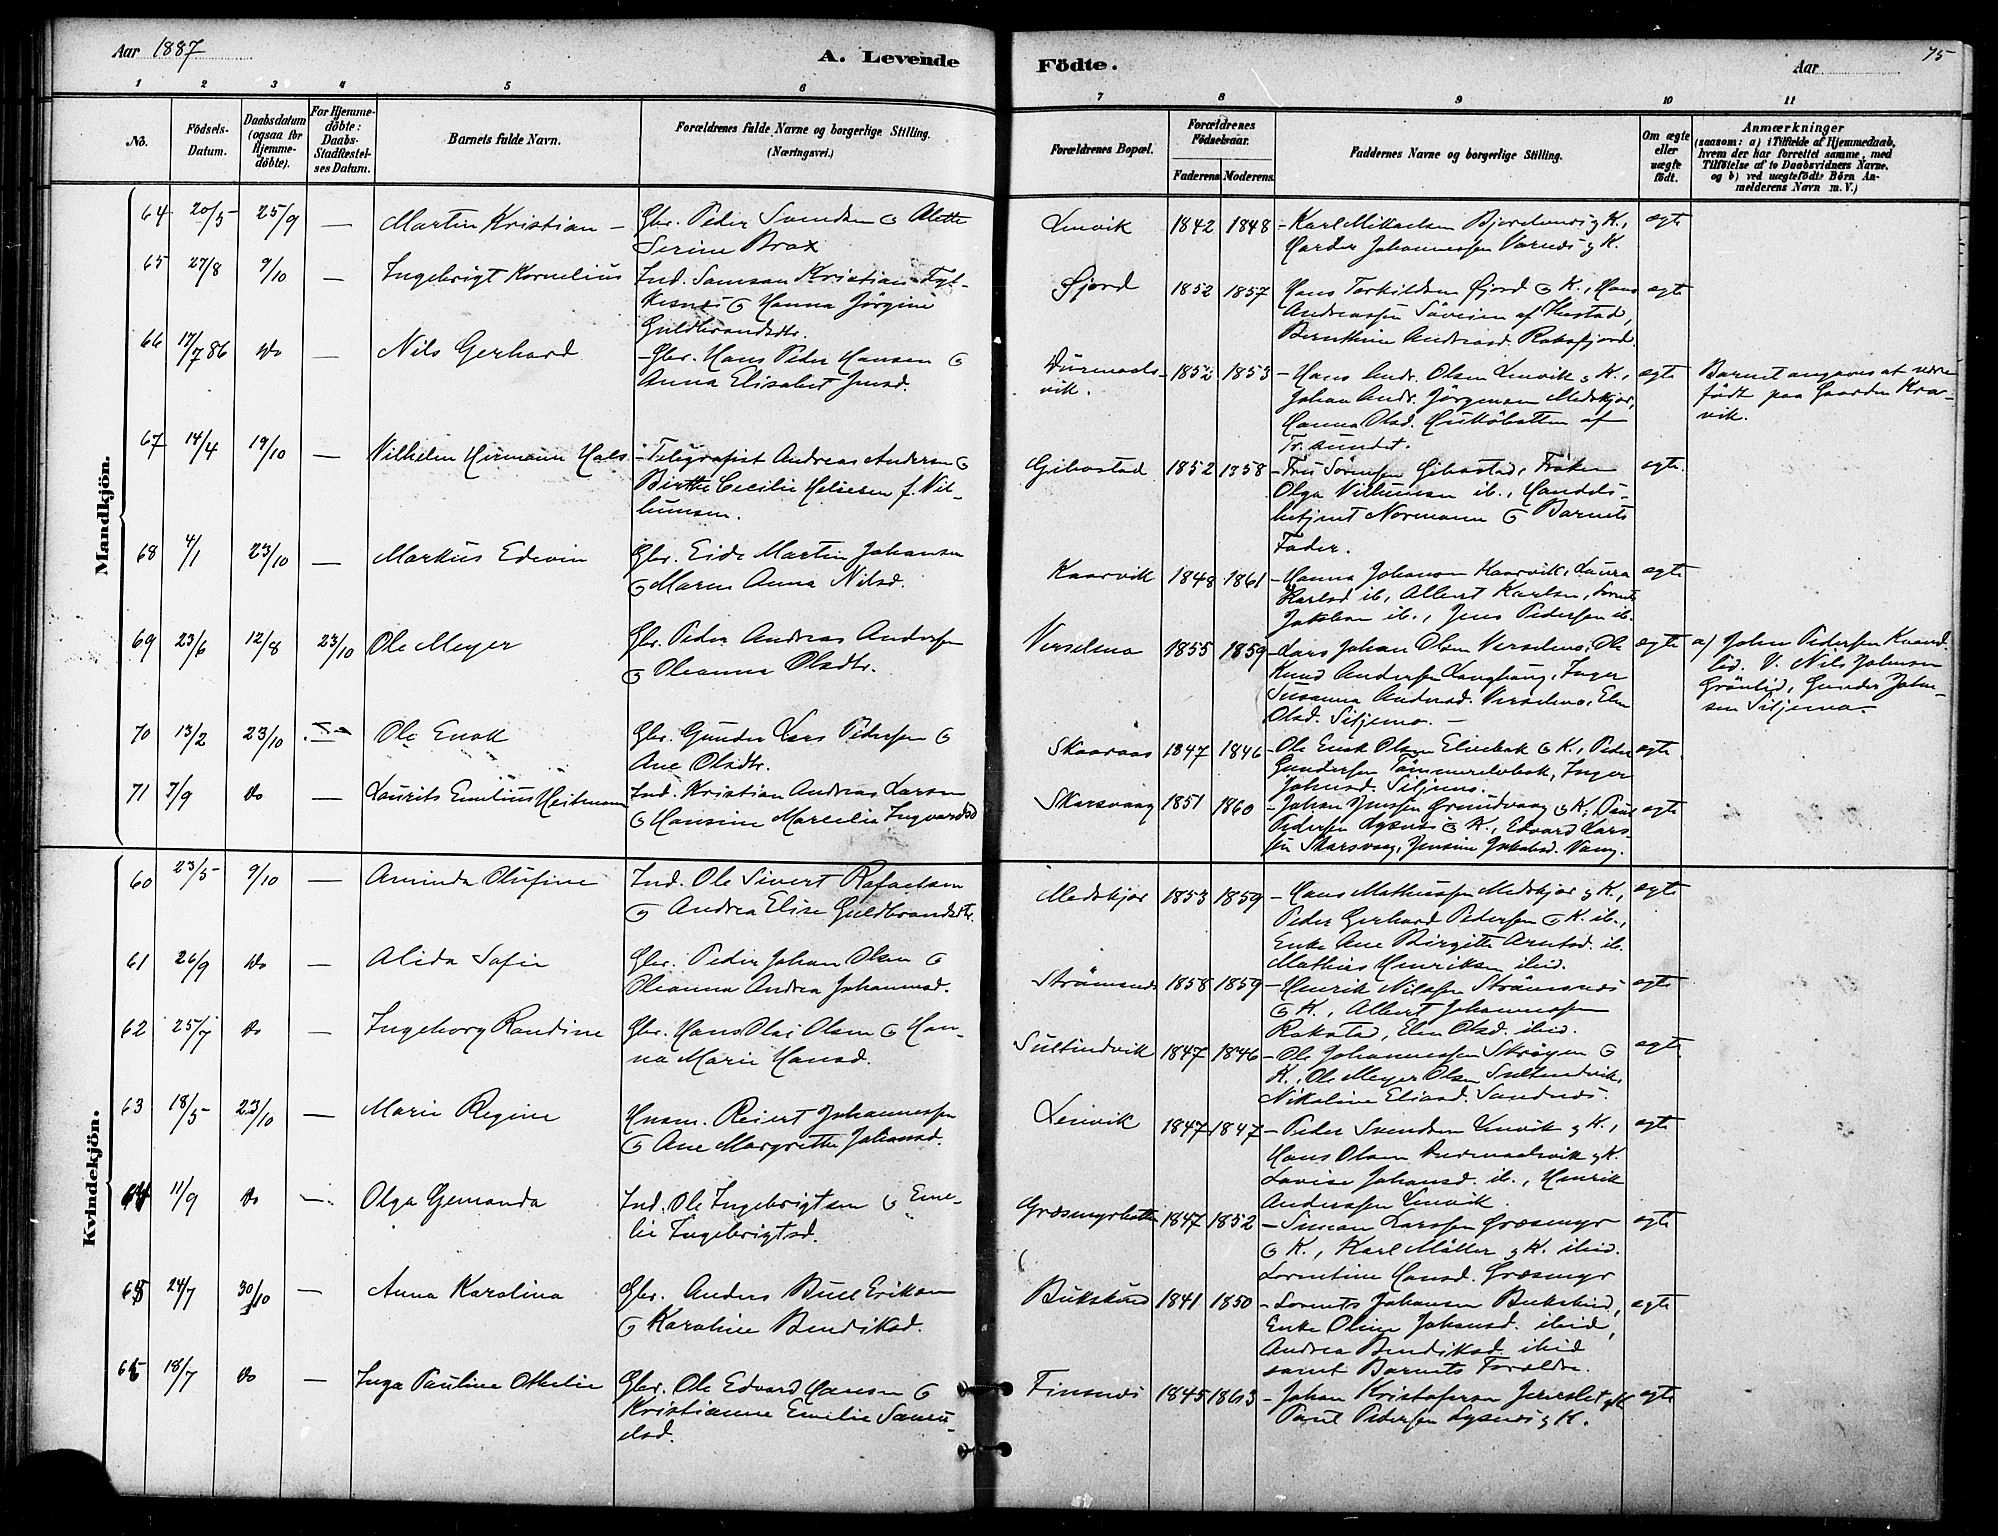 Aar 1887
A. Levende
Födte.
Aar
75
1 2 3 4 5 6 7 8 9 10 11
No.
Födsels-
Datum.
Daabsdatum
(ogsaa for
Hjemme-
döbte).
For Hjemme-
döbte:
Daabs-
Stadfæstel-
ses Datum.
Barnets fulde Navn.
Forældrenes fulde Navne og borgerlige Stilling.
(Næringsvei.)
Forældrenes Bopæl.
Forældrenes
Födselsaar.
Faderens. Moderens.
Faddernes Navne og borgerlige Stilling.
Om ægte
eller
uægte
födt.
Anmærkninger
(saasom: a) i Tilfælde af Hjemmedaab,
hvem der har forrettet samme, med
Tilföielse af to Daabsvidners Navne.
og b) ved uægtefödte Börn An-
melderens Navn m. V.)
Mandkjön.
64 20/5 25/9 — Martin Kristian — Gbr. Peder Svendsen & Alette
Serine Brax
Lenvik 1842 1848 – Karl Mikkelsen Bjorelvnes & K.,
Johannessen Vårnes & K.
ægte
65 27/8 9/10 — Ingebrigt Kornelius Ind. Samson Kristian Fyl-
kesnes & Hanna Jørgine
Guldbrandsdtr.
Øjord 1852 1857 Hans Torkildsen Øjord & K., Hans
Andreassen af Hestad,
Bernthine Andreasd. Roksfjord.
ægte
66 17/7 86 Do — Nils Gerhard – Gbr. Hans Peder Hansen &
Anna Elisabet Jensd.
Durmaals-
vik. 1852 1853 – Hans Andr. Olsen Lenvik & K.,
Johan Andr. Jörgensen Medskjer,
Hanna Olsd. af
Tr.sundet.
ægte Barnet angaves at være
født paa Gaarden Krav-
vik.
67 14/4 19/10 — Vilhelm Hermann Hals – Telegrafist Andreas Andersen &
Birthe Cecilie Helsesen f. Vil-
humsen.
Gibostad 1852 1858 – Fru Sörensen Gibostad, Frøken
Olga Vilhumsen ib., Handels-
betjent Normann & Barnets
Fader.
ægte
68 4/1 23/10 — Markus Edevin Gbr. Eide Martin Johansen
& Maren Anna Nilsd.
Kaarvik 1848 1861 – Hanna Johanson Kaarvik, Laura
Karlsd ib., Albert Karlsen,
Jakobsen ib., Jens Pedersen ib.
ægte
69 23/6 12/8 23/10 Ole Meyer Gbr. Peder Andreas Andersen
& Oleanna Olsdtr.
Verselmo 1855 1859 – Lars Johan Olsen Verselmo, Ole
Knud Andersen Langhaug, Inger
Susanna Andersd. Verselmo, Elen
Olsd. Siljemo. —
ægte a) John Pedersen
lid. V. Nils Johnsen
Grönlid, Gunder John-
sen Siljemo.
70 13/2 23/10 — Ole Enok Gbr. Gunder Lars Pedersen &
Ane Olsdtr.
Skaaraas 1847 1846 – Ole Enok Olsen Elvebak & K., Peder
Gundersen Tömmerelvbak, Inger
Johnsd. Siljemo.
ægte
71 7/9 Do — Laurits Emilius Heitmann Ind. Kristian Andreas Larsen
& Hansine Marcelia Ingvardsd
Skarsvaag 1851 1860 – Johan Jensen Grundvaag & K., Paul
Pedersen Lysnes & K., Edvard Lars-
sen Skarsvaag, Jensine Jakobsd. Vang.
ægte
Kvindekjön.
60 23/5 9/10 — Aminda Olufine Ind. Ole Sivert Rafaelsen
& Andrea Elise Guldbrandsdtr.
Medskjer 1853 1859 – Hans Mathiassen Medskjer & K.,
Peder Gerhard Pedersen & K. ib.,
Enke Ane Birgitte Arntsd. ib.
Mathias Henriksen ibid.
ægte
61 26/9 Do — Alida Sofie Gbr. Peder Johan Olsen &
Oleanna Andrea Johannsd.
Strömsnes 1858 1859 – Henrik Nilssen Strömsnes
& K., Albert Johannessen
Rakstad, Elen Olsd. ibid.
ægte
62 25/7 Do — Ingeborg Randine Gbr. Hans Olai Olsen & Han-
na Marie Hansd.
Sultindvik 1847 1846 – Ole Johannessen Skrøyen &
K., Ole Meyer Olsen Sultindvik,
Nikoline Eliasd. Sandnes.
ægte
63 18/5 23/10 — Marie Regine Husm. Reiert Johannessen
& Ane Margrethe Johansd.
Lenvik 1847 1847 – Peder Svendsen Lenvik & K.,
Hans Olsen Durmaalsvik & K.
Lovise Johansd. ib., Henrik
Anderssen Lenvik
ægte
64 11/9 Do — Olga Gemanda Ind. Ole Ingebrigtsen & Eme-
lie Ingebrigtsd.
Græsmyrbotten 1847 1852 – Simon Larssen Græsmyr
& K., Karl Möller & K. ibid.
Lorentine Hansd. Græsmyr
ægte
65 24/7 30/10 — Anna Karolina Gbr. Anders Bull Eriksen
& Karoline Bendiksd.
Bukskind 1841 1850 – Lorents Johansen Bukskind,
Enke Oline Johansd. ibid,
Andrea Bendiksd ibid
samt Barnets Forældre.
ægte
66 18/7 Do — Inga Pauline Othelie Gbr. Ole Edvard Hansen &
Kristianne Emilie Samu-
elsd.
Finsnes 1845 1863 – Johan Kristofersen & K
Paul Pedersen Lysnes & K.
ægte